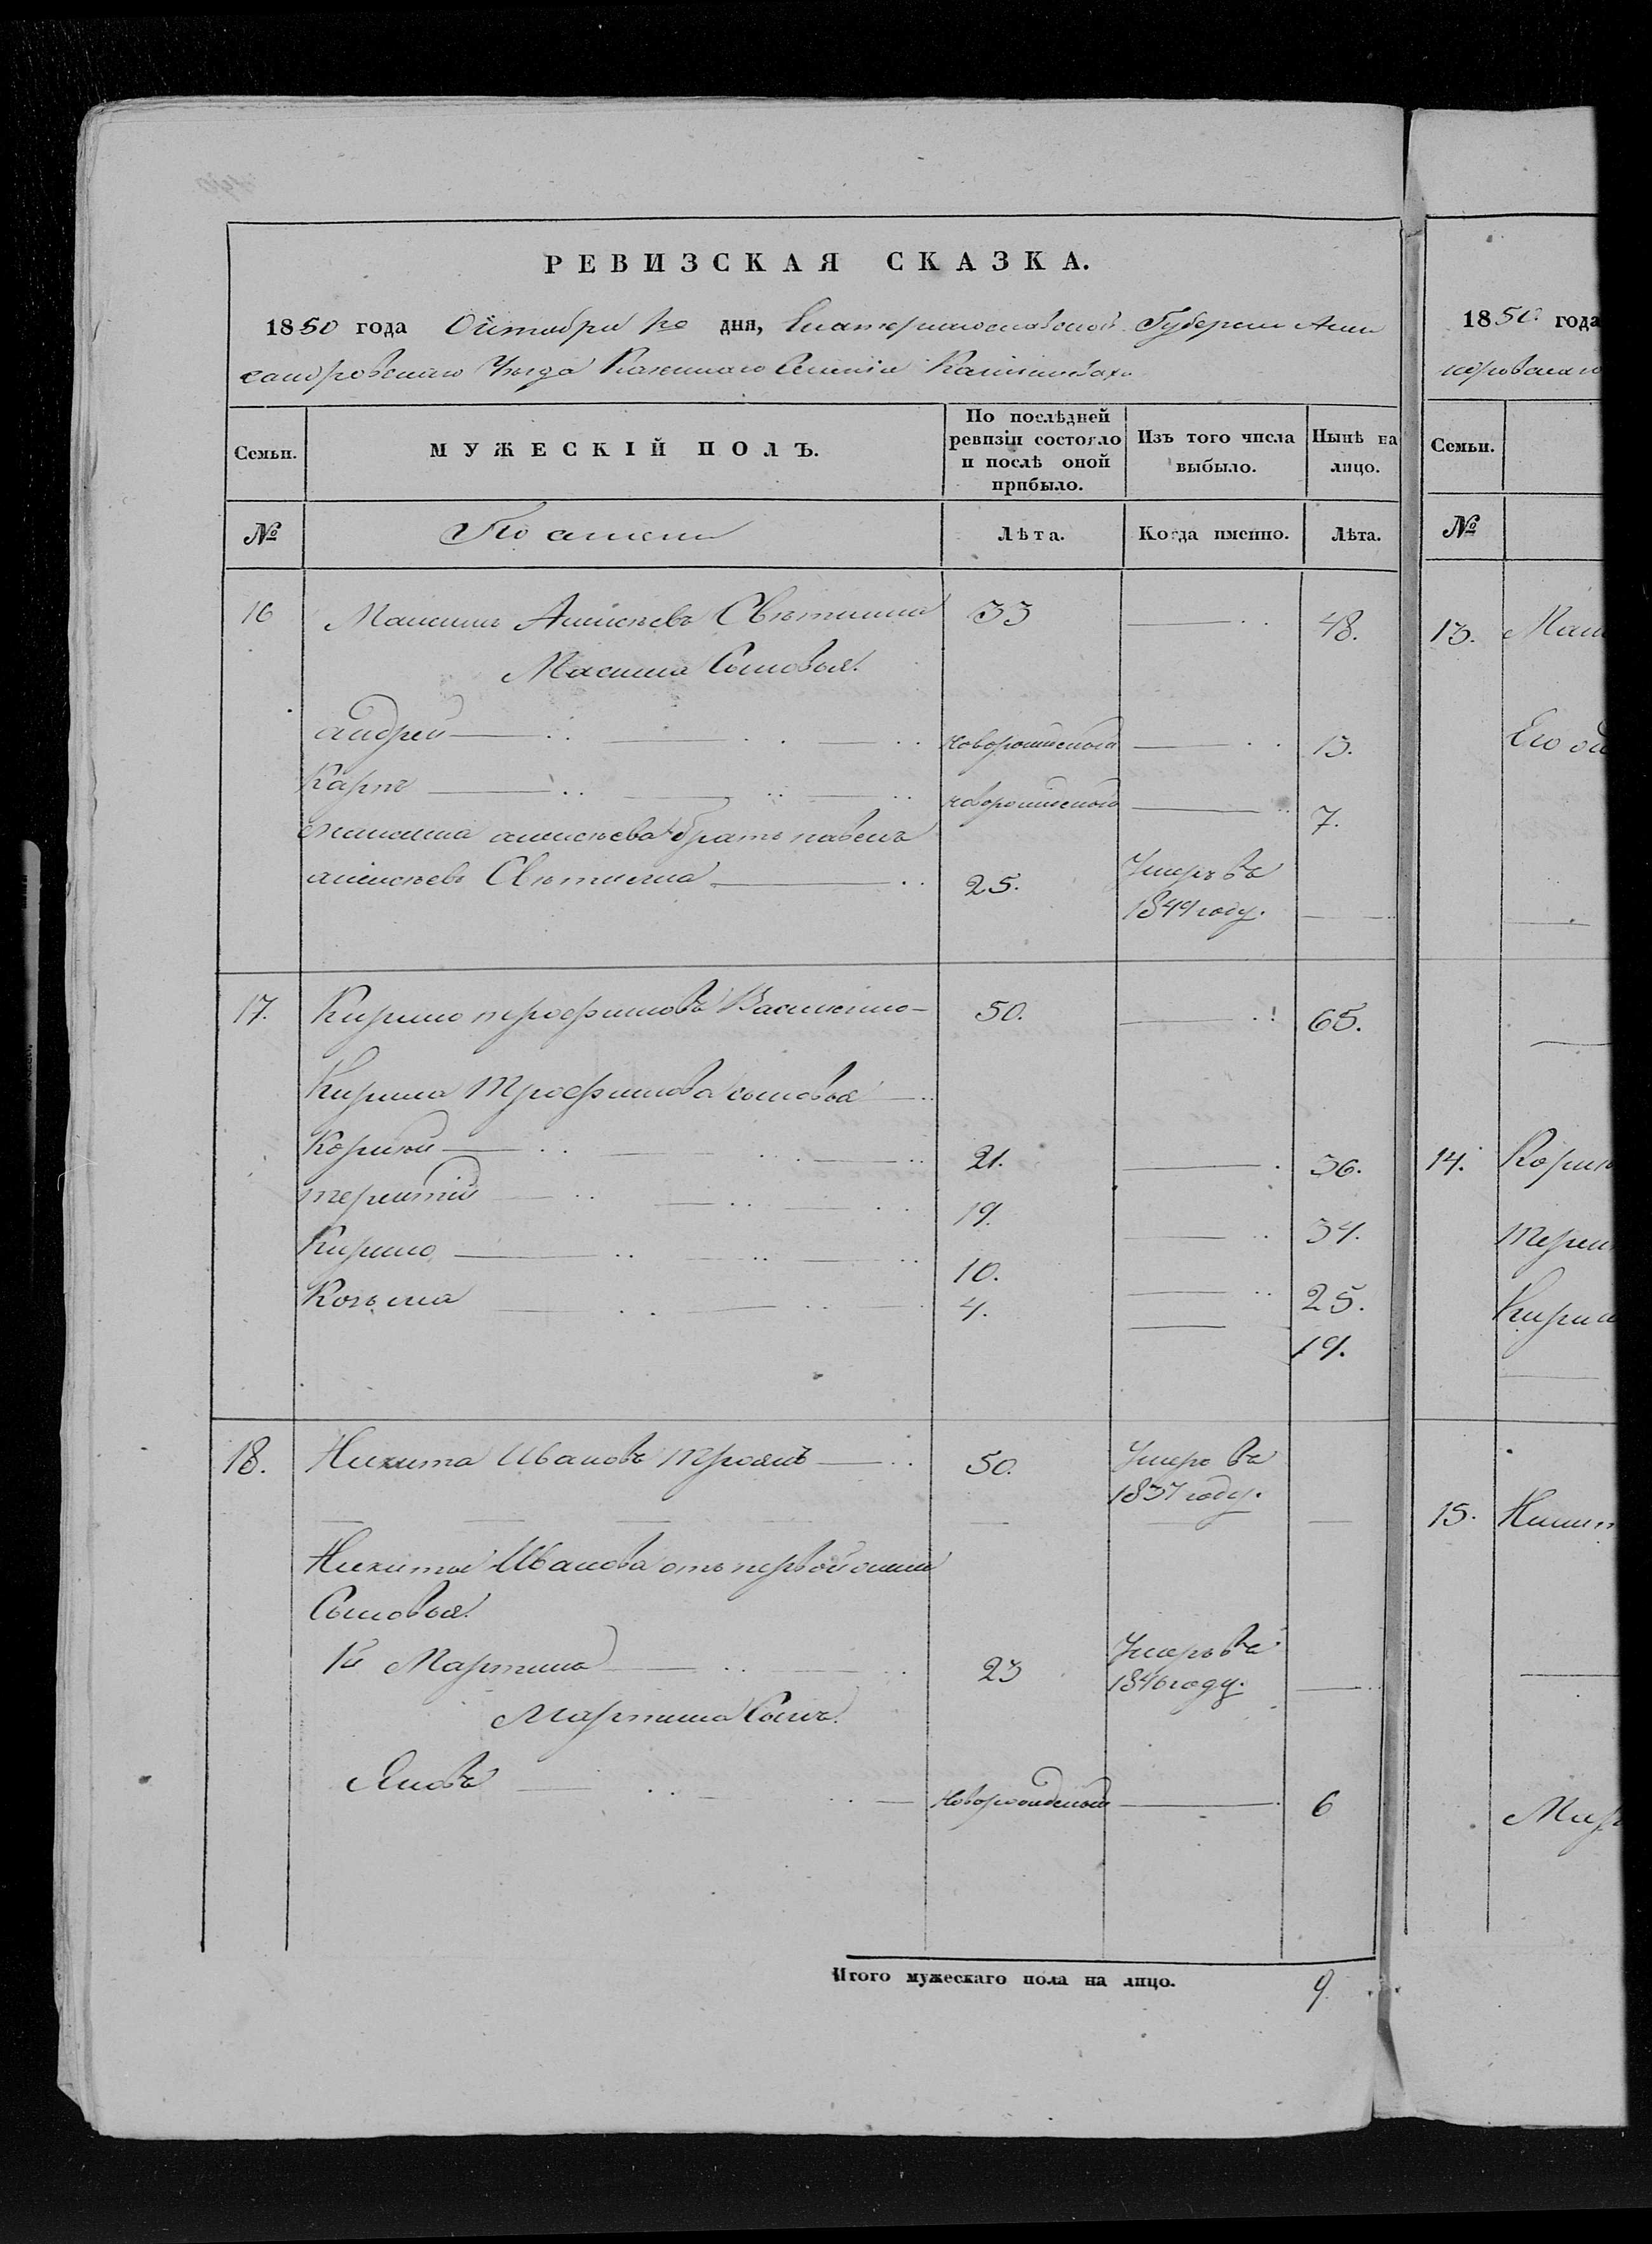 РЕВИЗСКАЯ СКАЗКА.
1850 года Октября 1го дня, Екатеринославской Губернии Алек
сандровскаго Уезда Казеннаго Селенія
Семьи.
МУЖЕСКІЙ ПОЛЪ.
По послѣдней ревизіи состояло и послѣ оной прибыло.
Изъ того числа выбыло.
Нынѣ на лицо.
№
Лѣта.
Когда именно.
Лѣта.
16 Максимъ Алексѣевъ 33 48.
Максима Сыновья.
андрей новорожденной 13.
Карпъ новорожденной 7.
Максима алексѣева братъ павелъ
алексѣевъ 25. Умеръ въ
1849 году.
17. Кирило трофимовъ 50. 65.
Кирила Трофимова сыновья
Корнѣй 21. 36.
терентій 19. 34.
Кирило 10. 25.
Козьма 4. 19.
18. Никита Ивановъ Троянъ 50. Умеръ въ
1837 году.
Никиты Иванова отъ первой жены
Сыновья.
1й Мартинъ 23 Умеръ въ
1846 году.
Мартина Сынъ.
Яковъ новорожденной 6
Итого мужескаго пола на лицо. 9.
1850 года
Семьи.
№
13.
Его
14.
15.